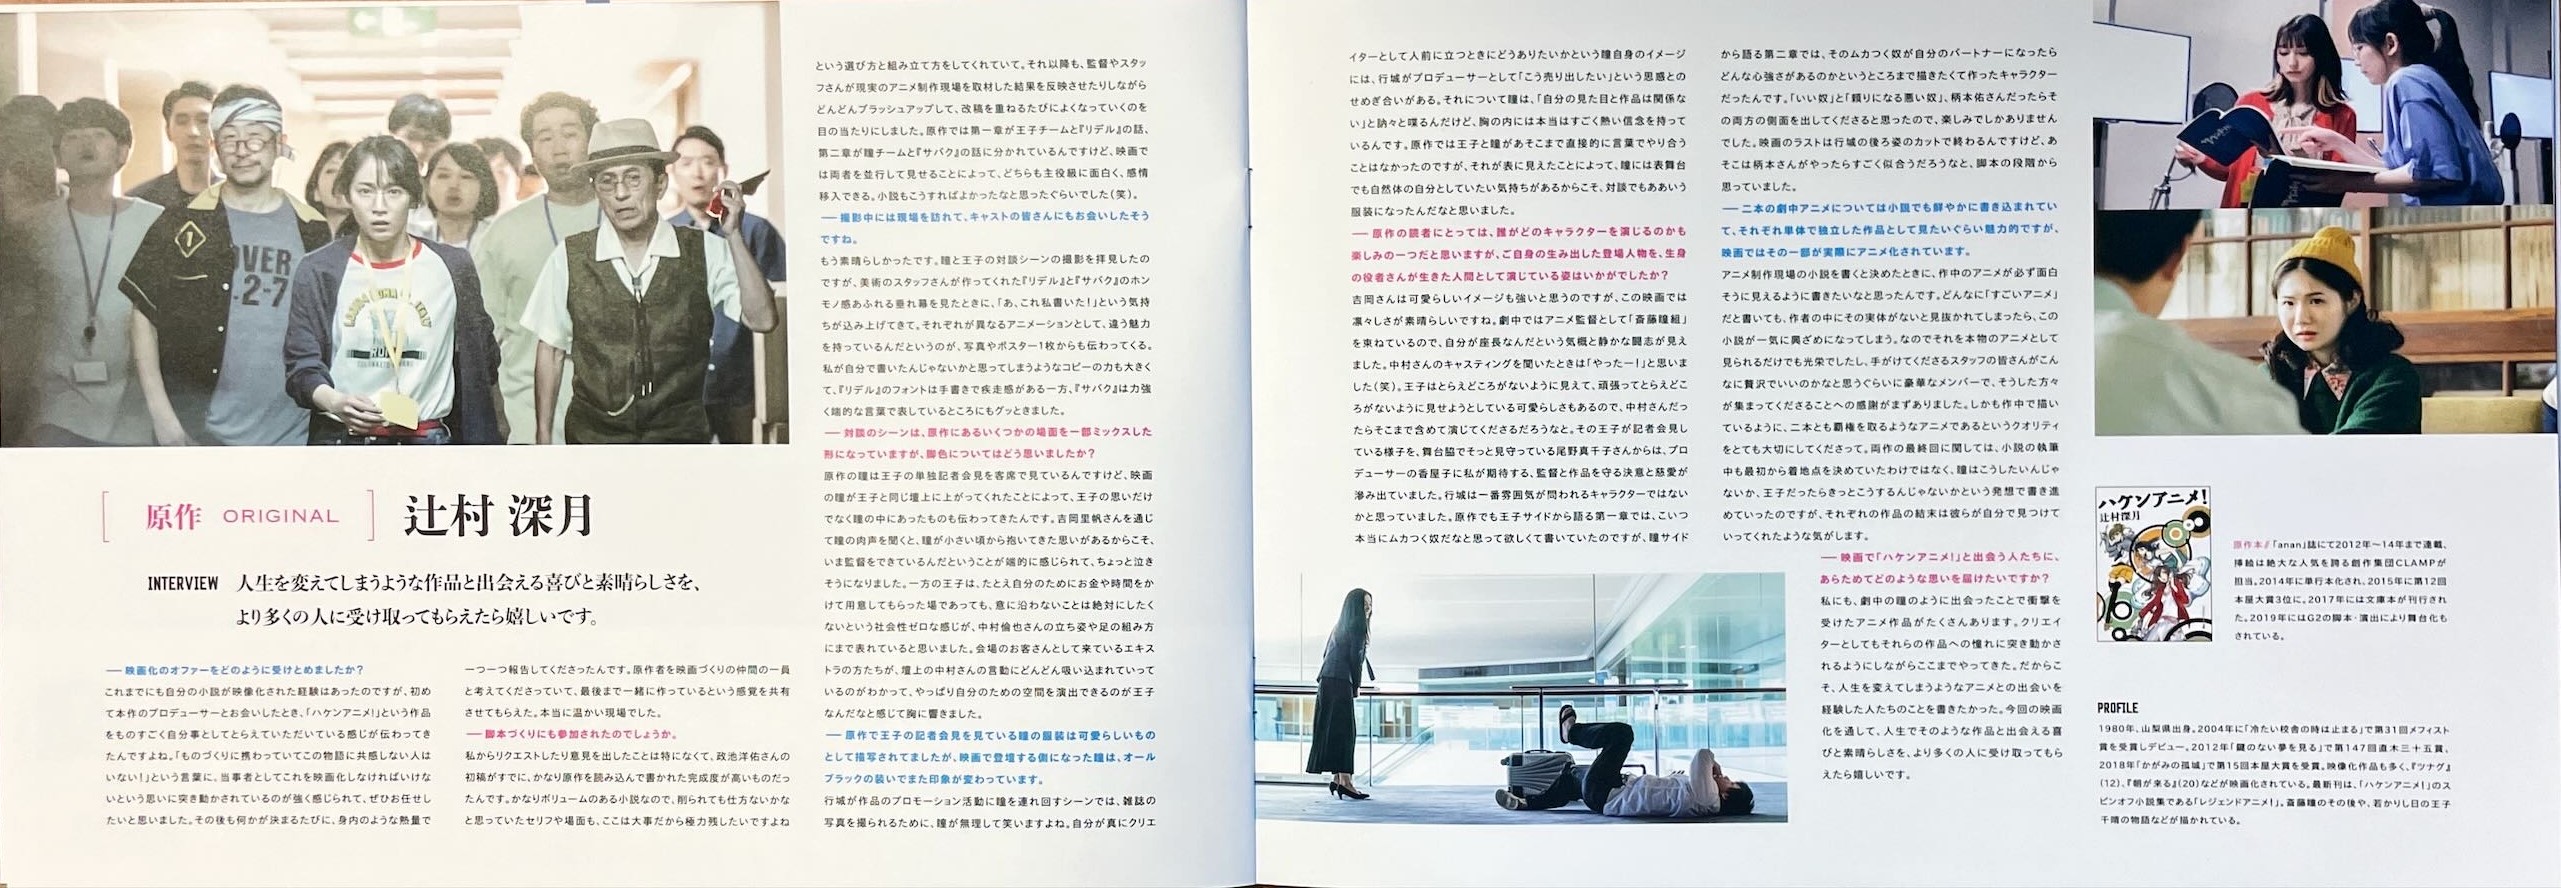 OVER
1-2-7
[原作 ORIGINAL] 辻村 深月
INTERVIEW 人生を変えてしまうような作品と出会える喜びと素晴らしさを、
より多くの人に受け取ってもらえたら嬉しいです。
── 映画化のオファーをどのように受けとめましたか?
これまでにも自分の小説が映像化された経験はあったのですが、初め
て本作のプロデューサーとお会いしたとき、「ハケンアニメ!」という作品
をものすごく自分事としてとらえていただいている感じが伝わってき
たんですよね。「ものづくりに携わっていてこの物語に共感しない人は
いない!」という言葉に、当事者としてこれを映画化しなければいけな
いという思いに突き動かされているのが強く感じられて、ぜひお任せし
たいと思いました。その後も何かが決まるたびに、身内のような熱量で
一つ一つ報告してくださったんです。原作者を映画づくりの仲間の一員
と考えてくださっていて、最後まで一緒に作っているという感覚を共有
させてもらえた。本当に温かい現場でした。
── 脚本づくりにも参加されたのでしょうか。
私からリクエストしたり意見を出したことは特になくて、政池洋佑さんの
初稿がすでに、かなり原作を読み込んで書かれた完成度が高いものだっ
たんです。かなりボリュームのある小説なので、削られても仕方ないかな
と思っていたセリフや場面も、ここは大事だから極力残したいですよね
という選び方と組み立て方をしてくれていて。それ以降も、監督やスタッ
フさんが現実のアニメ制作現場を取材した結果を反映させたりしながら
どんどんブラッシュアップして、改稿を重ねるたびによくなっていくのを
目の当たりにしました。原作では第一章が王子チームと『リデル』の話、
第二章が瞳チームと『サバク』の話に分かれているんですけど、映画で
は両者を並行して見せることによって、どちらも主役級に面白く、感情
移入できる。小説もこうすればよかったなと思ったぐらいでした(笑)。
── 撮影中には現場を訪れて、キャストの皆さんにもお会いしたそう
ですね。
もう素晴らしかったです。瞳と王子の対談シーンの撮影を拝見したの
ですが、美術のスタッフさんが作ってくれた『リデル』と『サバク』のホン
モノ感あふれる垂れ幕を見たときに、「あ、これ私書いた!」という気持
ちが込み上げてきて。それぞれが異なるアニメーションとして、違う魅力
を持っているんだというのが、写真やポスター1枚からも伝わってくる。
私が自分で書いたんじゃないかと思ってしまうようなコピーの力も大きく
て、『リデル』のフォントは手書きで疾走感がある一方、『サバク』は力強
く端的な言葉で表しているところにもグッときました。
── 対談のシーンは、原作にあるいくつかの場面を一部ミックスした
形になっていますが、脚色についてはどう思いましたか?
原作の瞳は王子の単独記者会見を客席で見ているんですけど、映画
の瞳が王子と同じ壇上に上がってくれたことによって、王子の思いだけ
でなく瞳の中にあったものも伝わってきたんです。吉岡里帆さんを通じ
て瞳の肉声を聞くと、瞳が小さい頃から抱いてきた思いがあるからこそ、
いま監督をできているんだということが端的に感じられて、ちょっと泣き
そうになりました。一方の王子は、たとえ自分のためにお金や時間をか
けて用意してもらった場であっても、意に沿わないことは絶対にしたく
ないという社会性ゼロな感じが、中村倫也さんの立ち姿や足の組み方
にまで表れていると思いました。会場のお客さんとして来ているエキス
トラの方たちが、壇上の中村さんの言動にどんどん吸い込まれていって
いるのがわかって、やっぱり自分のための空間を演出できるのが王子
なんだなと感じて胸に響きました。
── 原作で王子の記者会見を見ている瞳の服装は可愛らしいもの
として描写されてましたが、映画で登壇する側になった瞳は、オール
ブラックの装いでまた印象が変わっています。
行城が作品のプロモーション活動に瞳を連れ回すシーンでは、雑誌の
写真を撮られるために、瞳が無理して笑いますよね。自分が真にクリエ
イターとして人前に立つときにどうありたいかという瞳自身のイメージ
には、行城がプロデューサーとして「こう売り出したい」という思惑との
せめぎ合いがある。それについて瞳は、「自分の見た目と作品は関係な
い」と訥々と喋るんだけど、胸の内には本当はすごく熱い信念を持って
いるんです。原作では王子と瞳があそこまで直接的に言葉でやり合う
ことはなかったのですが、それが表に見えたことによって、瞳には表舞台
でも自然体の自分としていたい気持ちがあるからこそ、対談でもああいう
服装になったんだなと思いました。
── 原作の読者にとっては、誰がどのキャラクターを演じるのかも
楽しみの一つだと思いますが、ご自身の生み出した登場人物を、生身
の役者さんが生きた人間として演じている姿はいかがでしたか?
吉岡さんは可愛らしいイメージも強いと思うのですが、この映画では
凛々しさが素晴らしいですね。劇中ではアニメ監督として「斎藤瞳組」
を束ねているので、自分が座長なんだという気概と静かな闘志が見え
ました。中村さんのキャスティングを聞いたときは「やったー!」と思いま
した(笑)。王子はとらえどころがないように見えて、頑張ってとらえどこ
ろがないように見せようとしている可愛らしさもあるので、中村さんだっ
たらそこまで含めて演じてくださるだろうなと。その王子が記者会見し
ている様子を、舞台脇でそっと見守っている尾野真千子さんからは、プロ
デューサーの香屋子に私が期待する、監督と作品を守る決意と慈愛が
滲み出ていました。行城は一番雰囲気が問われるキャラクターではない
かと思っていました。原作でも王子サイドから語る第一章では、こいつ
本当にムカつく奴だなと思って欲しくて書いていたのですが、瞳サイド
から語る第二章では、そのムカつく奴が自分のパートナーになったら
どんな心強さがあるのかというところまで描きたくて作ったキャラクター
だったんです。「いい奴」と「頼りになる悪い奴」、柄本佑さんだったらそ
の両方の側面を出してくださると思ったので、楽しみでしかありません
でした。映画のラストは行城の後ろ姿のカットで終わるんですけど、あ
そこは柄本さんがやったらすごく似合うだろうなと、脚本の段階から
思っていました。
── 二本の劇中アニメについては小説でも鮮やかに書き込まれてい
て、それぞれ単体で独立した作品として見たいぐらい魅力的ですが、
映画ではその一部が実際にアニメ化されています。
アニメ制作現場の小説を書くと決めたときに、作中のアニメが必ず面白
そうに見えるように書きたいなと思ったんです。どんなに「すごいアニメ」
だと書いても、作者の中にその実体がないと見抜かれてしまったら、この
小説が一気に興ざめになってしまう。なのでそれを本物のアニメとして
見られるだけでも光栄でしたし、手がけてくださるスタッフの皆さんがこん
なに贅沢でいいのかなと思うぐらいに豪華なメンバーで、そうした方々
が集まってくださることへの感謝がまずありました。しかも作中で描い
ているように、二本とも覇権を取るようなアニメであるというクオリティ
をとても大切にしてくださって。両作の最終回に関しては、小説の執筆
中も最初から着地点を決めていたわけではなく、瞳はこうしたいんじゃ
ないか、王子だったらきっとこうするんじゃないかという発想で書き進
めていったのですが、それぞれの作品の結末は彼らが自分で見つけて
いってくれたような気がします。
── 映画で「ハケンアニメ!」と出会う人たちに、
あらためてどのような思いを届けたいですか?
私にも、劇中の瞳のように出会ったことで衝撃を
受けたアニメ作品がたくさんあります。クリエイ
ターとしてもそれらの作品への憧れに突き動かさ
れるようにしながらここまでやってきた。だからこ
そ、人生を変えてしまうようなアニメとの出会いを
経験した人たちのことを書きたかった。今回の映画
化を通して、人生でそのような作品と出会える喜
びと素晴らしさを、より多くの人に受け取ってもら
えたら嬉しいです。
ハケンアニメ!
辻村深月
原作本//「anan」誌にて2012年〜14年まで連載、
挿絵は絶大な人気を誇る創作集団CLAMPが
担当。2014年に単行本化され、2015年に第12回
本屋大賞3位に。2017年には文庫本が刊行され
た。2019年にはG2の脚本・演出により舞台化も
されている。
PROFILE
1980年、山梨県出身。2004年に「冷たい校舎の時は止まる」で第31回メフィスト
賞を受賞しデビュー。2012年「鍵のない夢を見る」で第147回直木三十五賞、
2018年「かがみの孤城」で第15回本屋大賞を受賞。映像化作品も多く、『ツナグ』
(12)、『朝が来る』(20)などが映画化されている。最新刊は、「ハケンアニメ!」のス
ピンオフ小説集である「レジェンドアニメ!」。斎藤瞳のその後や、若かりし日の王子
千晴の物語などが描かれている。